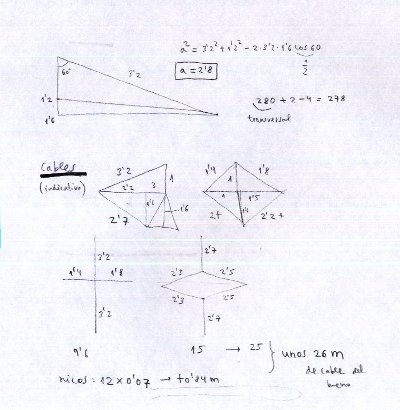 a² = 3'2² + 1'2² - 2·3'2·1'6 cos 60
1/2
a = 2'8
60°
3'2
1'2
1'6
280 + 2 - 4 = 278
transversal
Cables
(indicativo)
3'2
1
2'2
3
1'6
2'7
1'4
1'8
1
1
1'5
1'4
2+
2'2+
3'2
1'4
1'8
3'2
2'7
2'3
2'5
2'3
2'5
2'7
9'6
15 → 25
unos 26 m
de cable del
bueno
nicos: 12 x 0'07 → +0'84 m